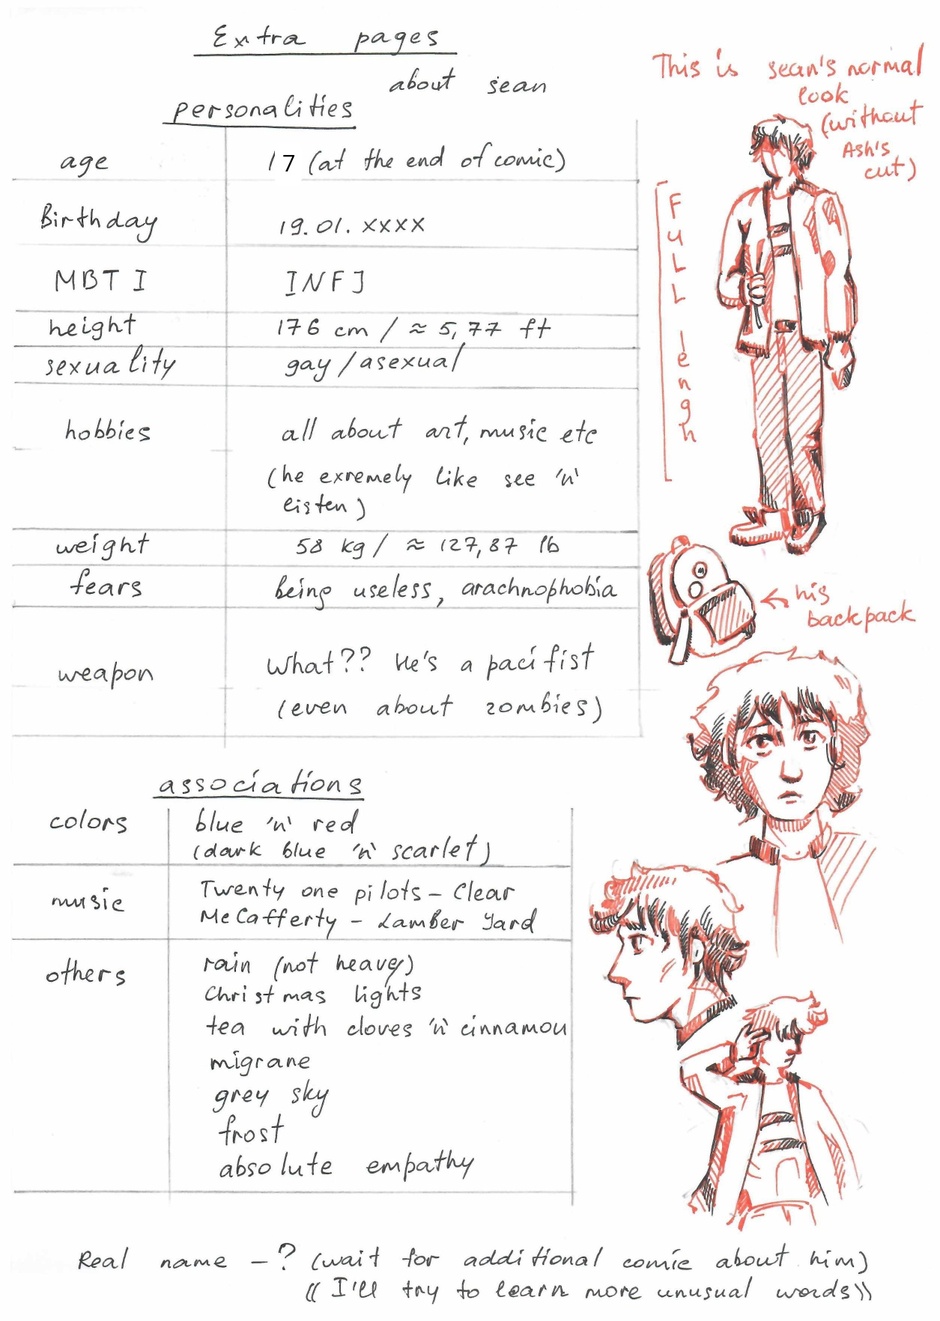 Extra pages
about sean
personalities
age 17 (at the end of comic)
Birthday 19.01.xxxx
MBTI INFJ
height 176 cm / ≈ 5,77 ft
sexuality gay/asexual
hobbies all about art, music etc
(he exremely like see 'n'
listen)
weight 58 kg / ≈ 127,87 lb
fears being useless, arachnophobia
weapon What?? He's a pacifist
(even about zombies)
This is sean's normal
look
(without
Ash's
cut)
FuLL lengh
← his
backpack
associations
colors blue 'n' red
(dark blue 'n' scarlet)
music Twenty one pilots – Clear
McCafferty – Lamber Yard
others rain (not heavy)
Christmas lights
tea with cloves 'n' cinnamon
migrane
grey sky
frost
absolute empathy
Real name – ? (wait for additional comic about him)
(( I'll try to learn more unusual words))